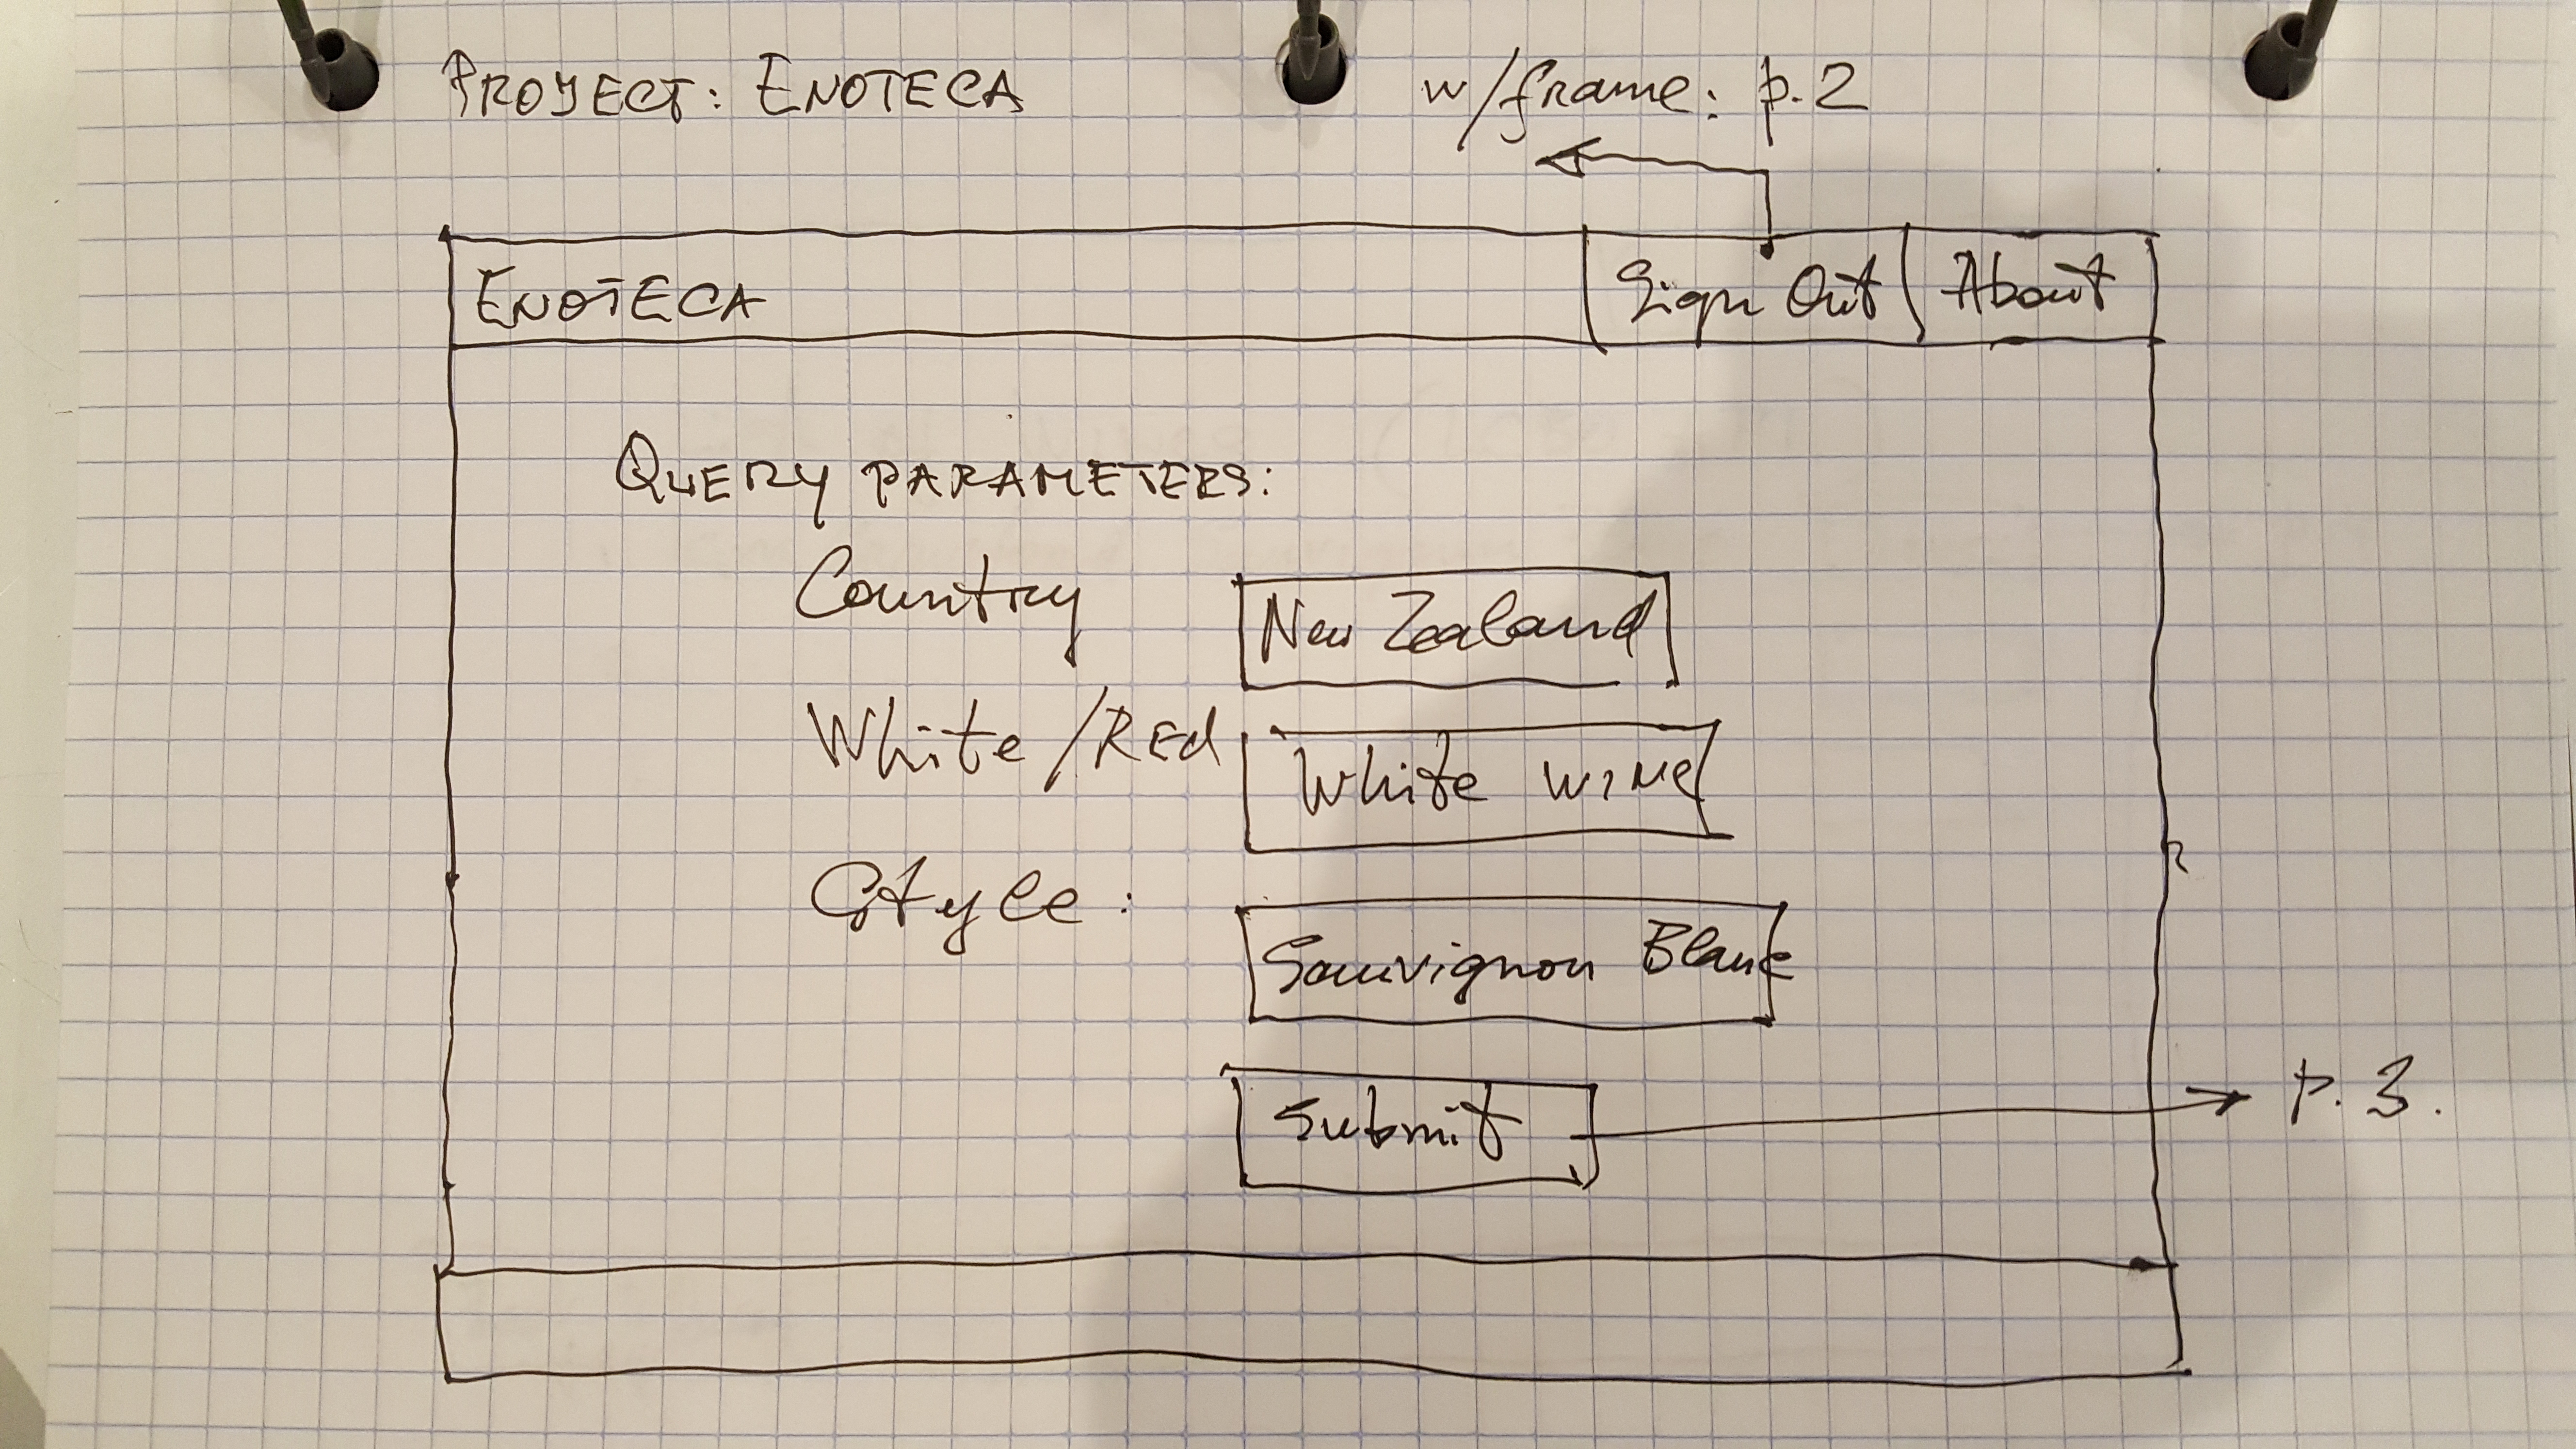 PROJECT: ENOTECA w/frame: p.2
ENOTECA Sign Out About
QUERY PARAMETERS:
Country New Zealand
White/Red White wine
Style: Sauvignon Blanc
Submit p. 3.